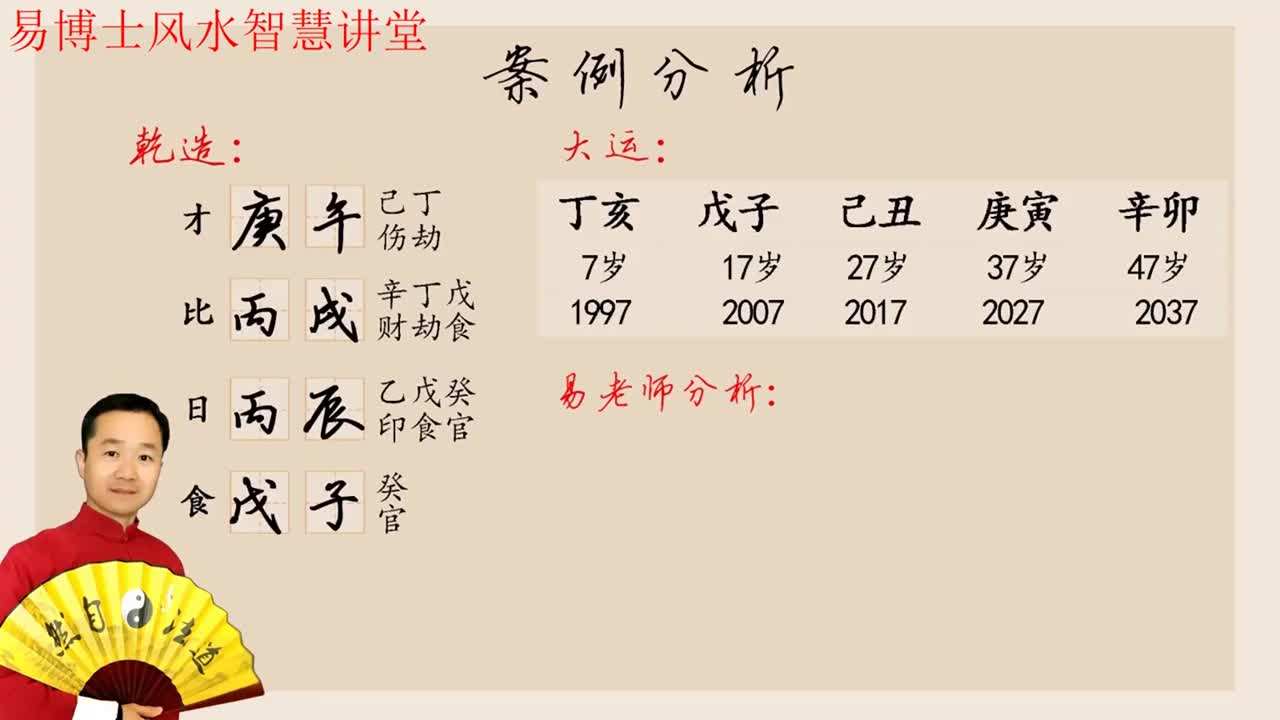 易博士风水智慧讲堂
案例分析
乾造：
才 庚 午 己丁
伤劫
比 丙 戌 辛丁戊
财劫食
日 丙 辰 乙戊癸
印食官
食 戊 子 癸
官
大运：
丁亥 戊子 己丑 庚寅 辛卯
7岁 17岁 27岁 37岁 47岁
1997 2007 2017 2027 2037
易老师分析：
然自法道